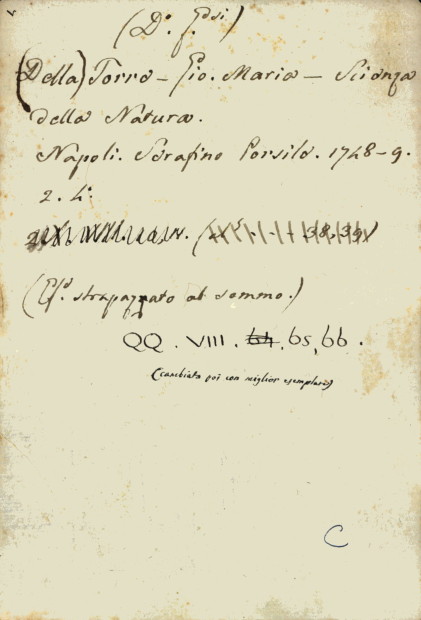 (D. f. Gesi.)
(Della) Torre - Gio. Maria - Scienza
della Natura.
Napoli. Serafino Porsile. 1748-9.
2. 4°
38.39)
(Es. strapazzato al sommo.)
QQ. VIII. 64, 65, 66.
(cambiato poi con miglior esemplare)
C